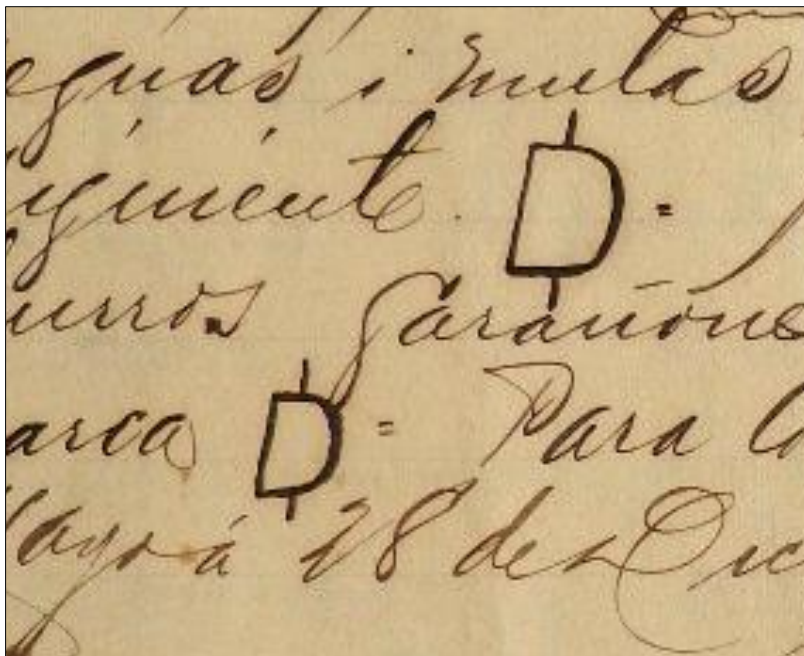 eguas i mulas
iguiente. D =
urros garañone
arca D = Para l
yagor á 28 de Dic